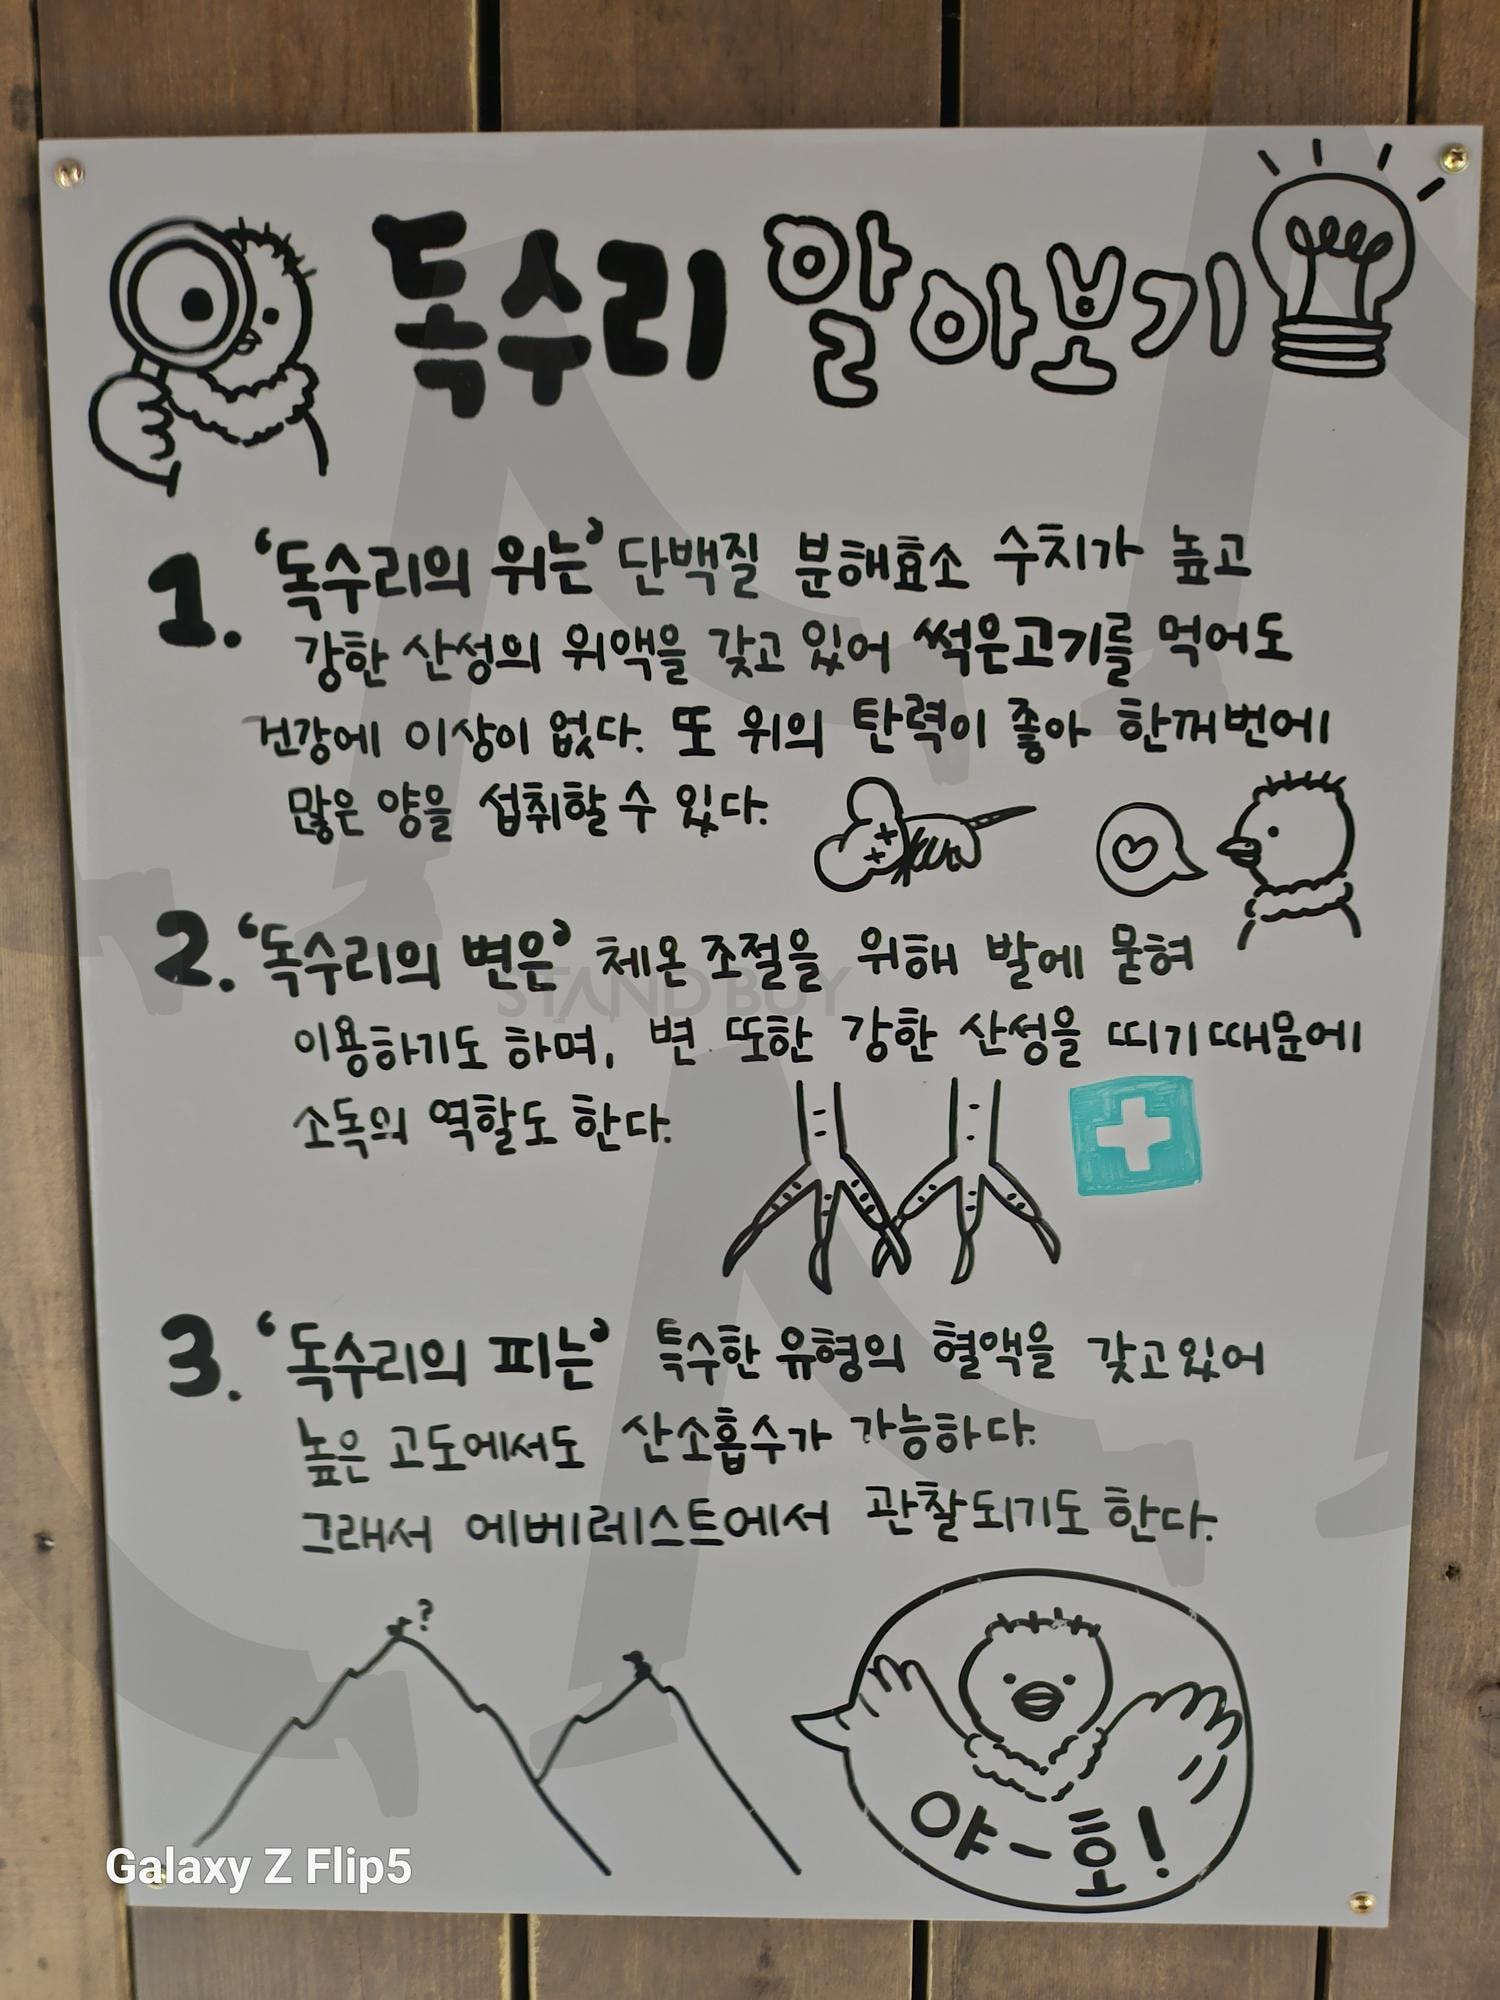 독수리 알아보기
1. '독수리의 위는' 단백질 분해효소 수치가 높고
강한 산성의 위액을 갖고 있어 썩은고기를 먹어도
건강에 이상이 없다. 또 위의 탄력이 좋아 한꺼번에
많은 양을 섭취할 수 있다.
2. '독수리의 변은' 체온 조절을 위해 발에 묻혀
이용하기도 하며, 변 또한 강한 산성을 띠기때문에
소독의 역할도 한다.
3. '독수리의 피는' 특수한 유형의 혈액을 갖고있어
높은 고도에서도 산소흡수가 가능하다.
그래서 에베레스트에서 관찰되기도 한다.
?
야-호!
STANDBUY
Galaxy Z Flip5